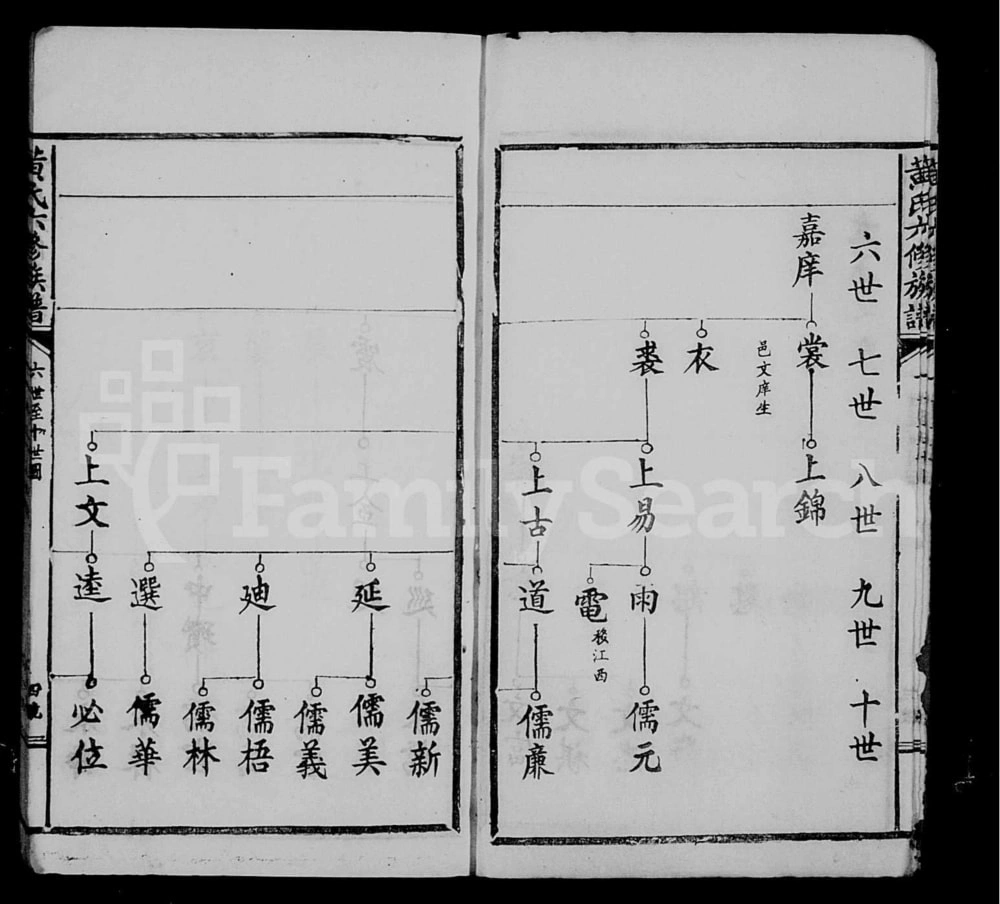 黃氏六修族譜
六世 七世 八世 九世 十世
嘉庠
裳
邑文庠生
上錦
衣
裘
上易
雨
儒元
電
移江西
上古
道
儒廉
儒新
延
儒美
儒義
迪
儒梧
儒林
選
儒華
上文
逵
必位
黃氏六修族譜
六世至十世圖
四號
FamilySearch